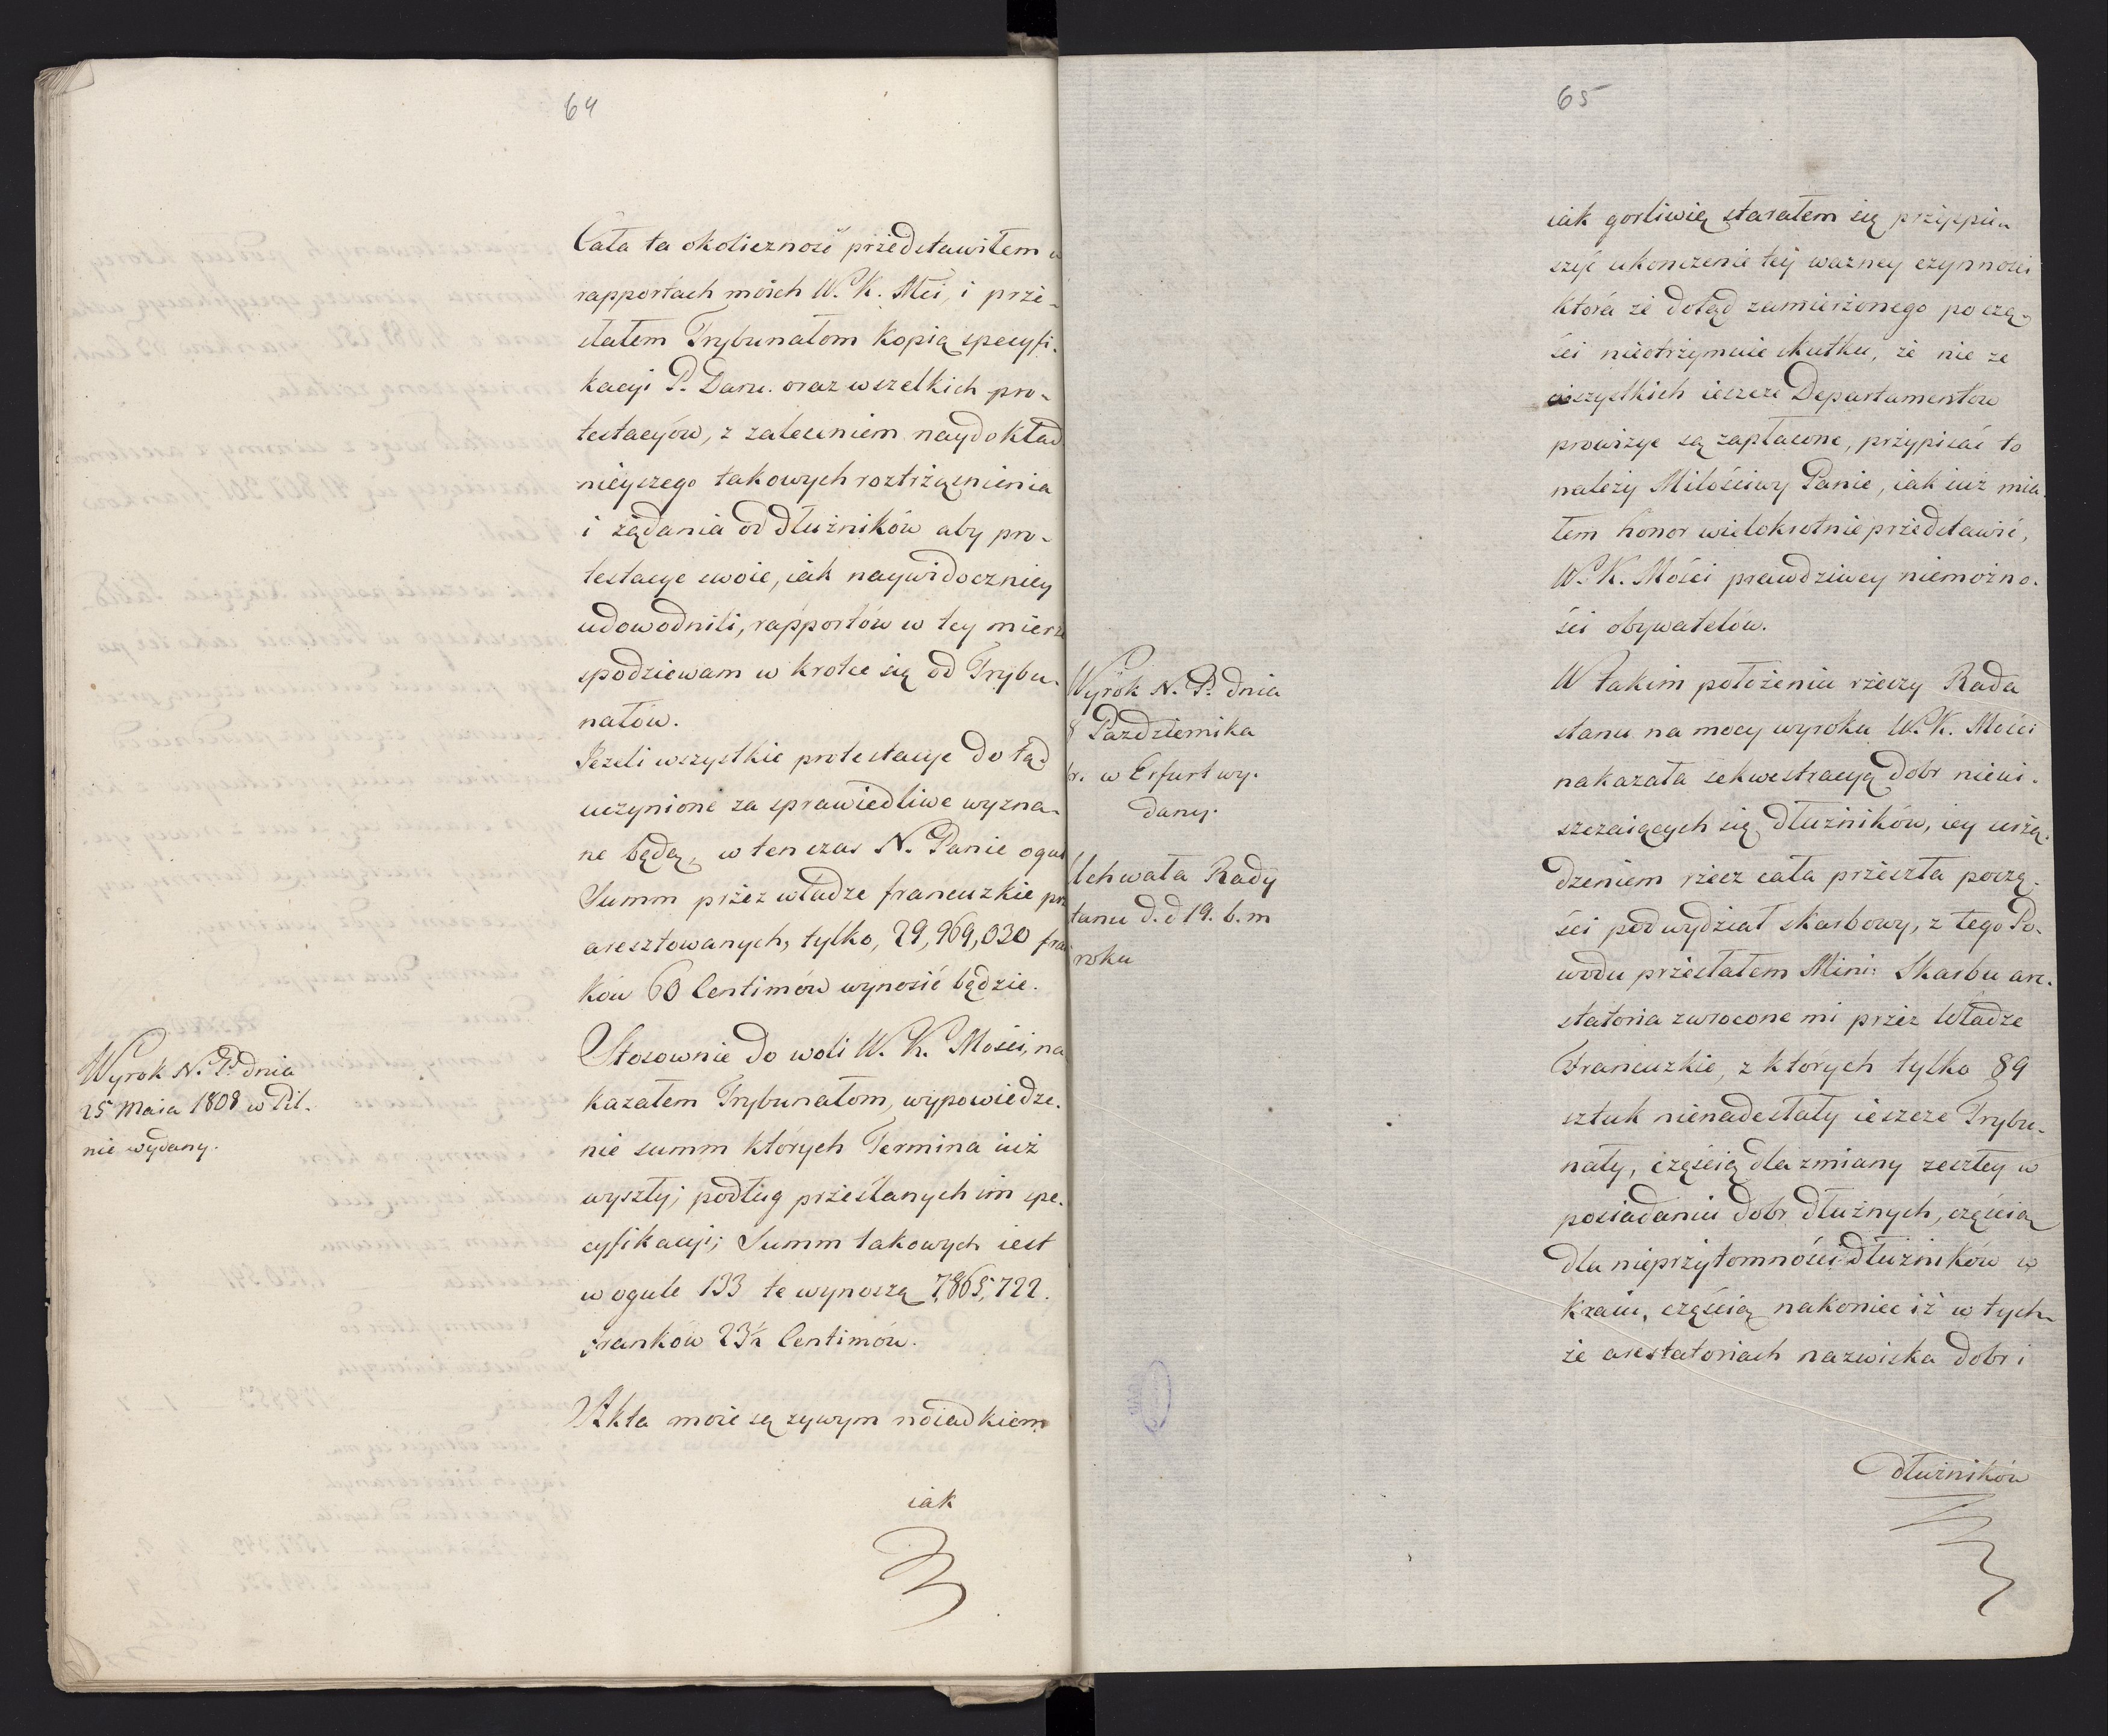 64
Cała ta okoliczność przedstawiłem w
rapportach moich W. K. Mci, i prze-
słałem Trybunałom Kopią specyfi-
kacyi P. Daru. oraz wszelkich pro-
testacyów, z zaleceniem naydokład
nieyszego takowych roztrząśnienia
i żądania od dłużników aby pro-
testacye swoie, iak naywidoczniey
udowodnili, rapportów w tey mierze
spodziewam w krotce się od Trybu-
nałów.
Jeżeli wszystkie protestacye do tąd
uczynione za sprawiedliwe wyzna-
ne będą, w ten czas N. Panie oguł
Summ przez władze francuzkie prz
aresztowanych, tylko, 29,969,030 fran
ków 60 Centimów wynosić będzie.
Wyrok N. P. dnia
25 Maia 1808 w Pil.
nie wydany.
Stosownie do woli W. K. Mości, na
kazałem Trybunałom, wypowiedze-
nie summ których Termina iuż
wyszły; podług przesłanych im spe-
cyfikacyi; Summ takowych iest
w ogule 133 te wynoszą 7,865,722.
franków 23½ Centimów.
Akta moie są żywym świadkiem
iak
65
iak gorliwie starałem się przyspie-
szyć ukonczenie tey ważney czynności
która że dotąd zamierzonego po czą-
ści nieotrzymuie skutku, że nie ze
wszystkich ieszcze Departamentów
prowizye są zapłacone, przypisać to
należy Miłościwy Panie, iak iuż mia-
łem honor wielokrotnie przedstawić,
W. K. Mości prawdziwey niemożno-
ści obywatelów.
Wyrok N. P. dnia
8 Pazdziernika
br. w Erfurt wy-
dany.
Uchwała Rady
stanu d. d 19. b. m
roku
W takim położeniu rzeczy Rada
stanu na mocy wyroku W. K. Mości
nakazała sekwestracyą dobr nieui-
szczaiących się dłużników, iey urzą-
dzeniem rzecz cała przeszła poczę-
ści pod wydział skarbowy, z tego Po-
wodu przesłałem Mini: Skarbu are-
statoria zwrocone mi przez Władze
Francuzkie, z których tylko 89
sztuk nienadesłały ieszcze Trybu-
nały, częścią dla zmiany zeszłey w
posiadaniu dobr dłużnych, częścią
dla nieprzytomności dłużników w
kraiu, częścią nakoniec iż w tych-
że arestatoriach nazwiska dobr i
dłużników